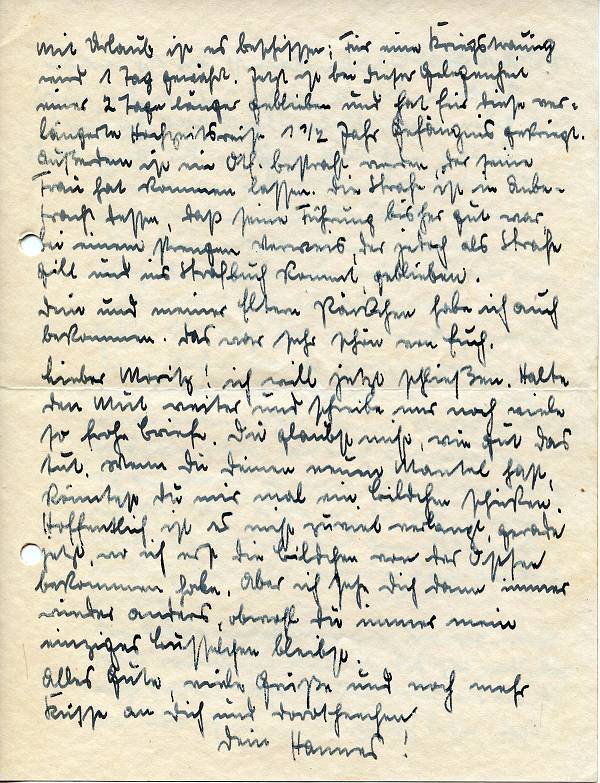 mit Urlaub ist es beschissen; Für eine Kriegstrauung
wird 1 Tag gewährt. Jetzt ist bei dieser Gelegenheit
einer 2 Tage länger geblieben und hat für diese ver-
längerte Hochzeitsreise 1 1/2 Jahr Gefängnis gekriegt.
Außerdem ist ein Ob. bestraft worden, der seine
Frau hat kommen lassen. Die Strafe ist in Anbe-
tracht dessen, daß seine Führung bisher gut war,
bei einem strengen Verweis, der jedoch als Strafe
gilt und ins Strafbuch kommt, geblieben.
Dein und meiner Eltern Päckchen habe ich auch
bekommen. Das war sehr schön von Euch.
Lieber Moritz! ich will jetzt schließen. Halte
den Mut weiter und schreibe mir noch viele
so frohe Briefe. Du glaubst nicht, wie gut das
tut. Wenn Du Deinen neuen Mantel hast,
könntest Du mir mal ein Bildchen schicken.
Hoffentlich ist es nicht zuviel verlangt, gerade
jetzt, wo ich erst die Bildchen von der Ostsee
bekommen habe. Aber ich sehe Dich dann immer
wieder anders, obwohl Du immer mein
einziges Busselchen bleibst.
Alles Gute, viele Grüße und noch mehr
Küsse an Dich und Dorotheechen
Dein Hannes!